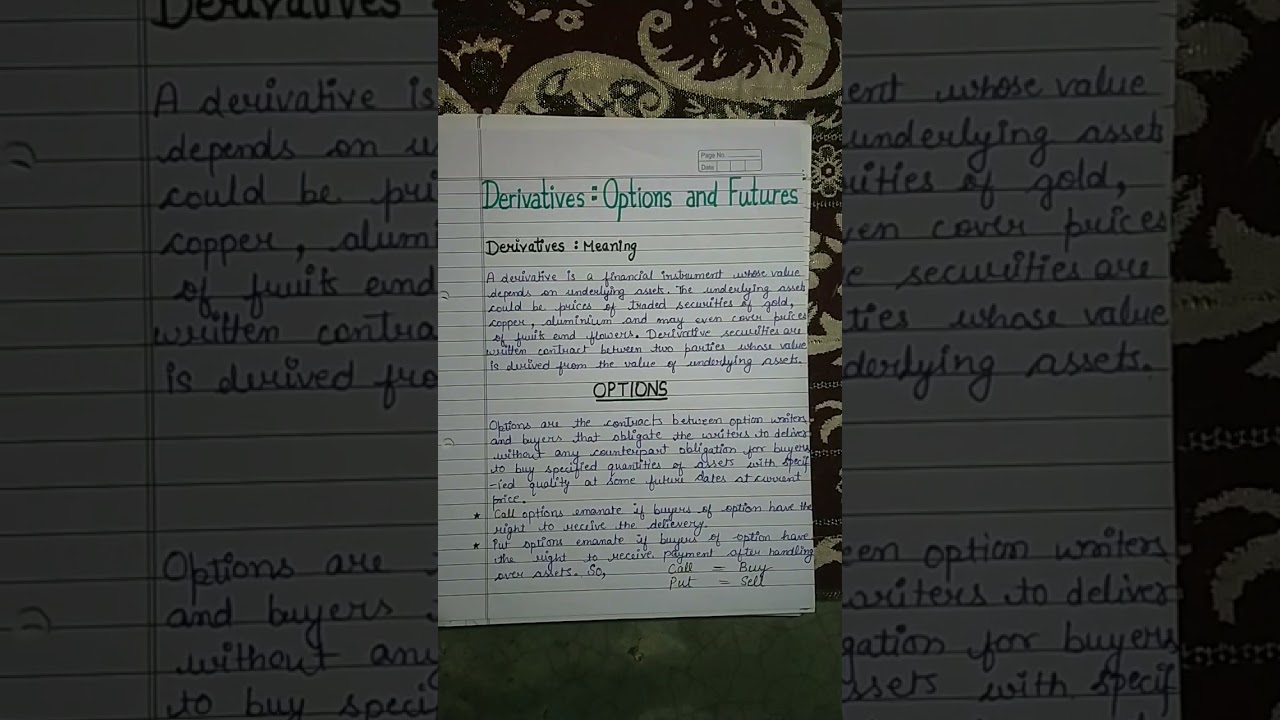 Page No.
Date
Derivatives : Options and Futures
Derivatives : Meaning
A derivative is a financial instrument whose value
depends on underlying assets. The underlying assets
could be prices of traded securities of gold,
copper, aluminium and may even cover prices
of fruits and flowers. Derivative securities are
written contract between two parties whose value
is derived from the value of underlying assets.
OPTIONS
Options are the contracts between option writers
and buyers that obligate the writers to deliver
without any counterpart obligation for buyers
to buy specified quantities of assets with specif
-ied quality at some future dates at current
price.
* Call options emanate if buyers of option have the
right to receive the delievery.
* Put options emanate if buyers of option have
the right to receive payment after handling
over assets. So,
Call = Buy
Put = Sell